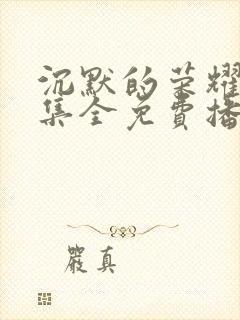 沉默的荣耀
集全免費播
嚴真